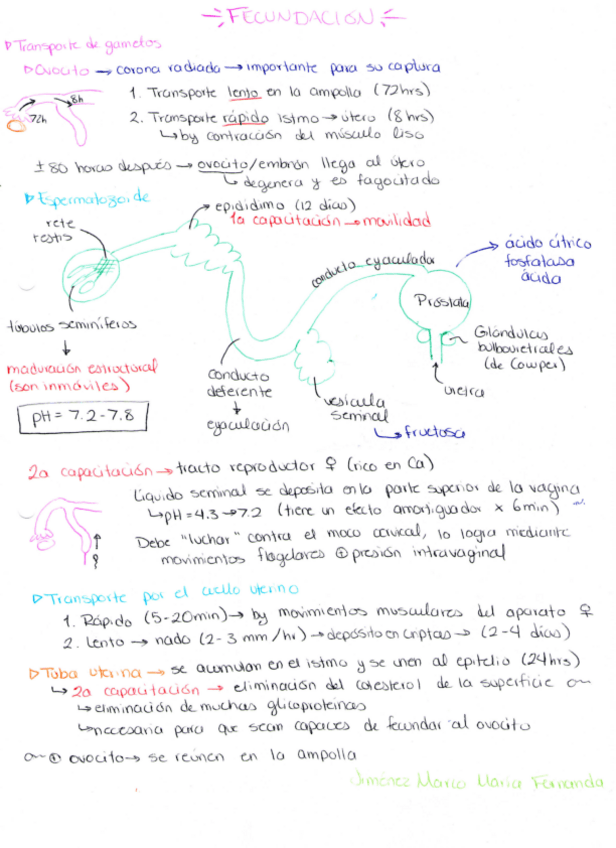 FECUNDACIÓN
▷ Transporte de gametos
▷ Ovocito → corona radiada → importante para su captura
1. Transporte lento en la ampolla (72hrs)
8h
72h
2. Transporte rápido Istmo → útero (8 hrs)
↳ by contracción del músculo liso
± 80 horas después → ovocito/embrión llega al útero
↳ degenera y es fagocitado
▷ Espermatozoide
epidídimo (12 días)
1a capacitación → movilidad
rete
testis
conducto eyaculador
ácido cítrico
fosfatasa
ácida
Próstata
túbulos seminíferos
Glándulas
bulbouretrales
(de Cowper)
maduración estructural
(son inmóviles)
conducto
deferente
eyaculación
vesícula
seminal
↳ fructosa
uretra
pH = 7.2-7.8
2a capacitación → tracto reproductor ♀ (rico en Ca)
Líquido seminal se deposita en la parte superior de la vagina
↳ pH = 4.3 → 7.2 (tiene un efecto amortiguador x 6min)
Debe "luchar" contra el moco cervical, lo logra mediante
movimientos flagelares ⊕ presión intravaginal
▷ Transporte por el cuello uterino
1. Rápido (5-20min) → by movimientos musculares del aparato ♀
2. Lento → nado (2-3 mm/hr) → depósito en criptas → (2-4 días)
▷ Tuba uterina → se acumulan en el istmo y se unen al epitelio (24hrs)
↳ 2a capacitación → eliminación del colesterol de la superficie
↳ eliminación de muchas glicoproteínas
↳ necesaria para que sean capaces de fecundar al ovocito
⊕ ovocito → se reúnen en la ampolla
Jiménez Marco María Fernanda